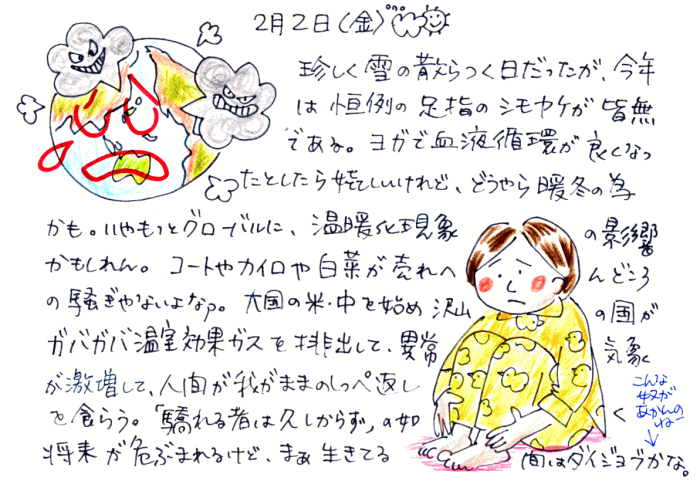 2月2日(金)
珍しく雪の散らつく日だったが、今年
は恒例の足指のシモヤケが皆無
である。ヨガで血液循環が良くなっ
たとしたら嬉しいけれど、どうやら暖冬の為
かも。いやもっとグローバルに、温暖化現象の影響
かもしれん。コートやカイロや白菜が売れへんどころ
の騒ぎやないよなァ。大国の米・中を始め沢山の国が
ガバガバ温室効果ガスを排出して、異常気象
が激増して、人間が我がままのしっぺ返し
を食らう。「驕れる者は久しからず」の如く
将来が危ぶまれるけど、まぁ生きてる間はダイジョブかな。
こんな
奴が
あかんの
ねー